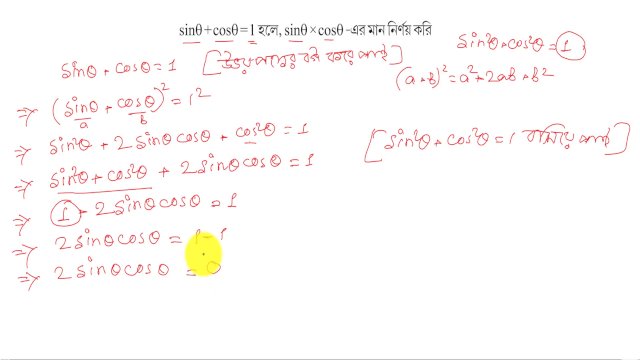 sinθ+cosθ=1 হলে, sinθ×cosθ -এর মান নির্ণয় করি
sinθ + cosθ = 1 [উভয়পক্ষের বর্গ করে পাই]
sin²θ + cos²θ = 1
(a+b)² = a² + 2ab + b²
⇒ (sinθ + cosθ)² = 1²
a b
⇒ sin²θ + 2 sinθ cosθ + cos²θ = 1
[sin²θ + cos²θ = 1 বসিয়ে পাই]
⇒ sin²θ + cos²θ + 2 sinθ cosθ = 1
⇒ 1 + 2 sinθ cosθ = 1
⇒ 2 sinθ cosθ = 1 - 1
⇒ 2 sinθ cosθ = 0